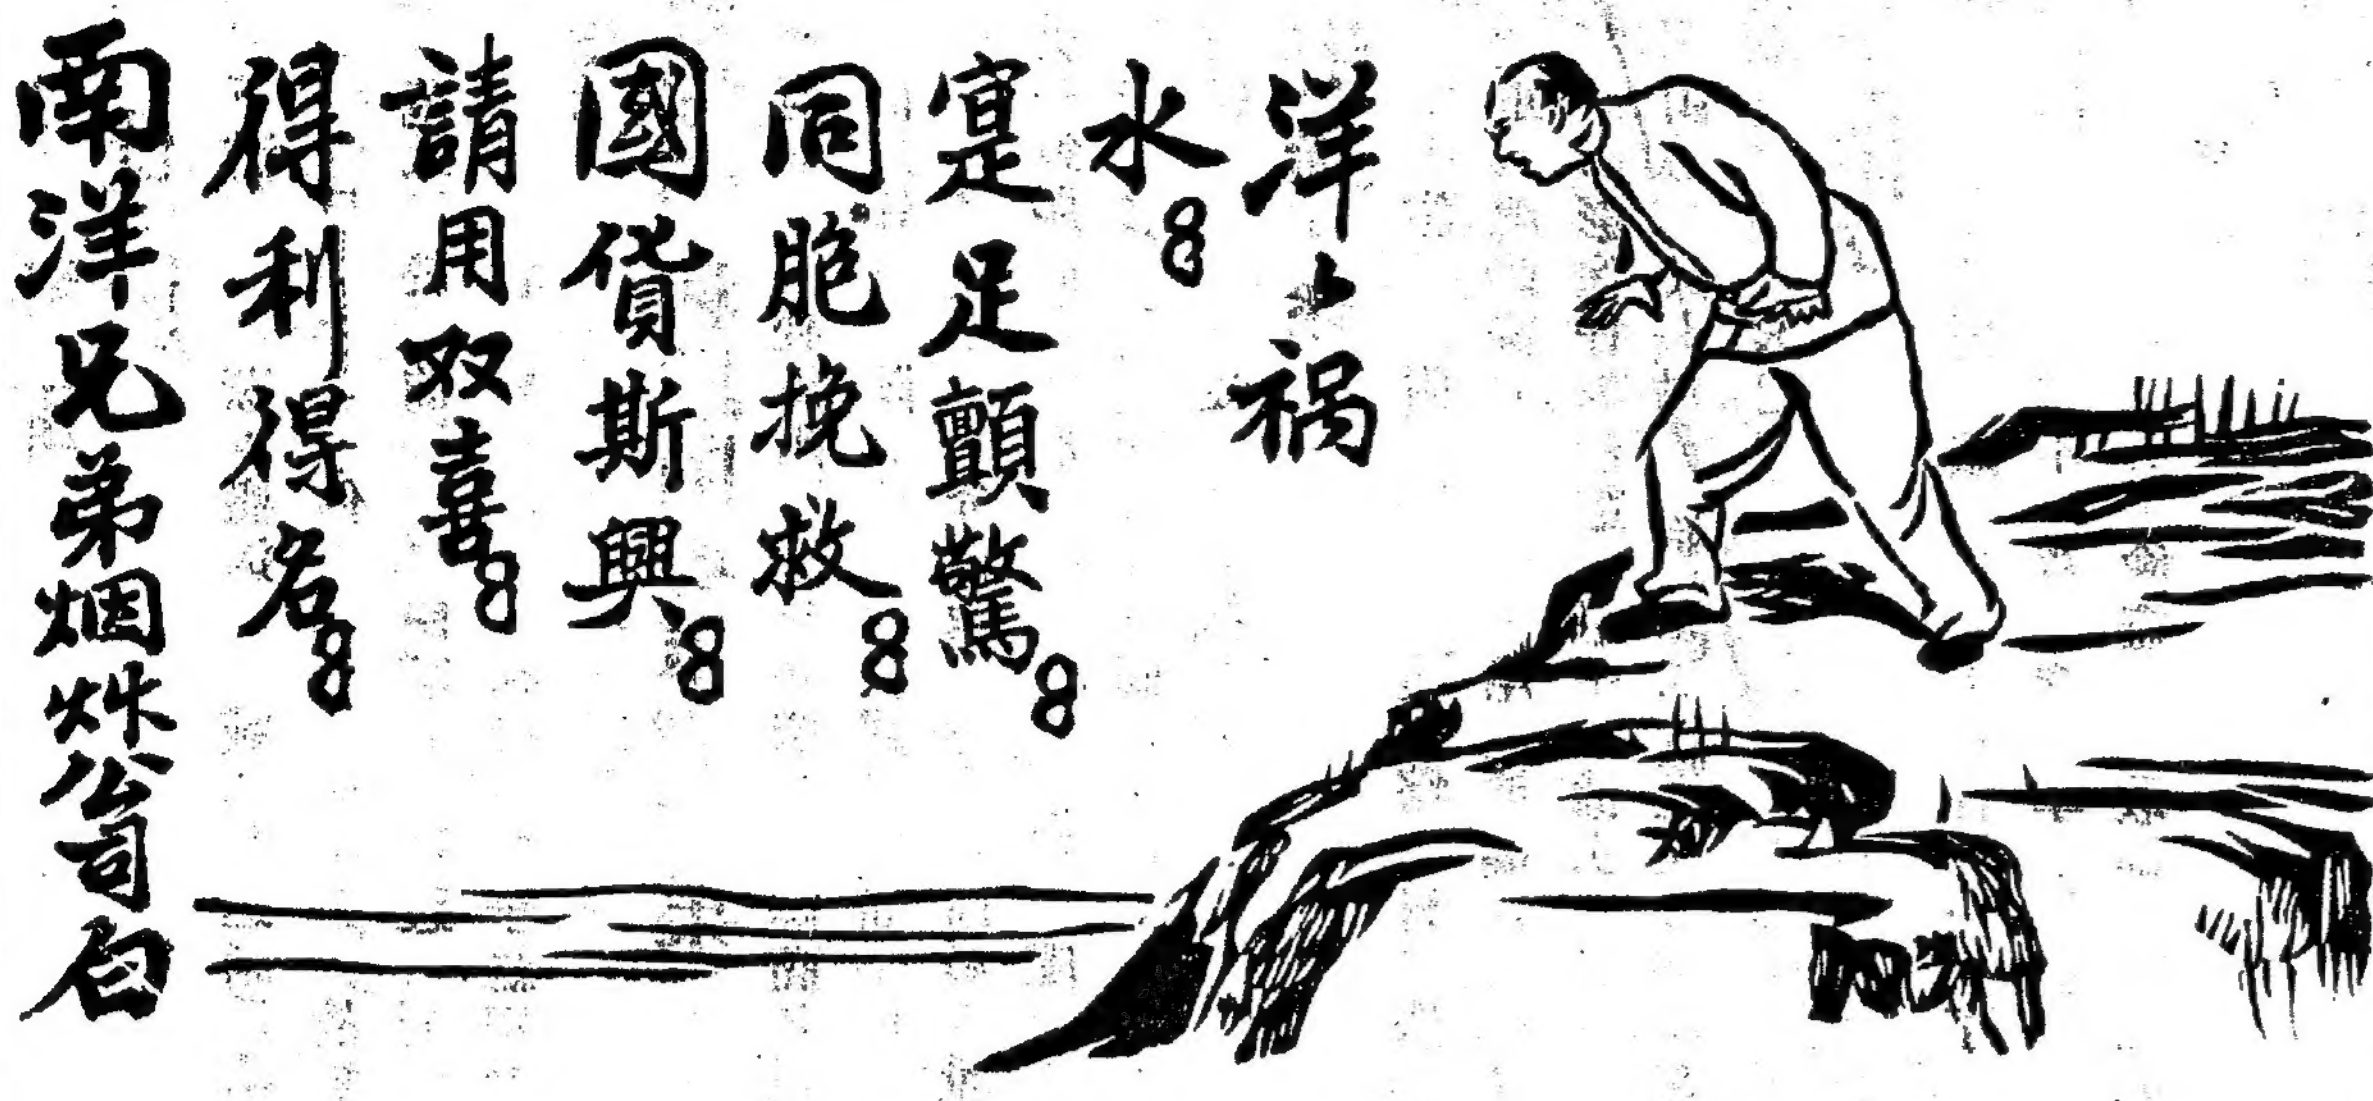 洋〻祸
水。
寔足顫驚。
同胞挽救。
國貨斯興。
請用双喜。
得利得名。
南洋兄弟烟艸公司白